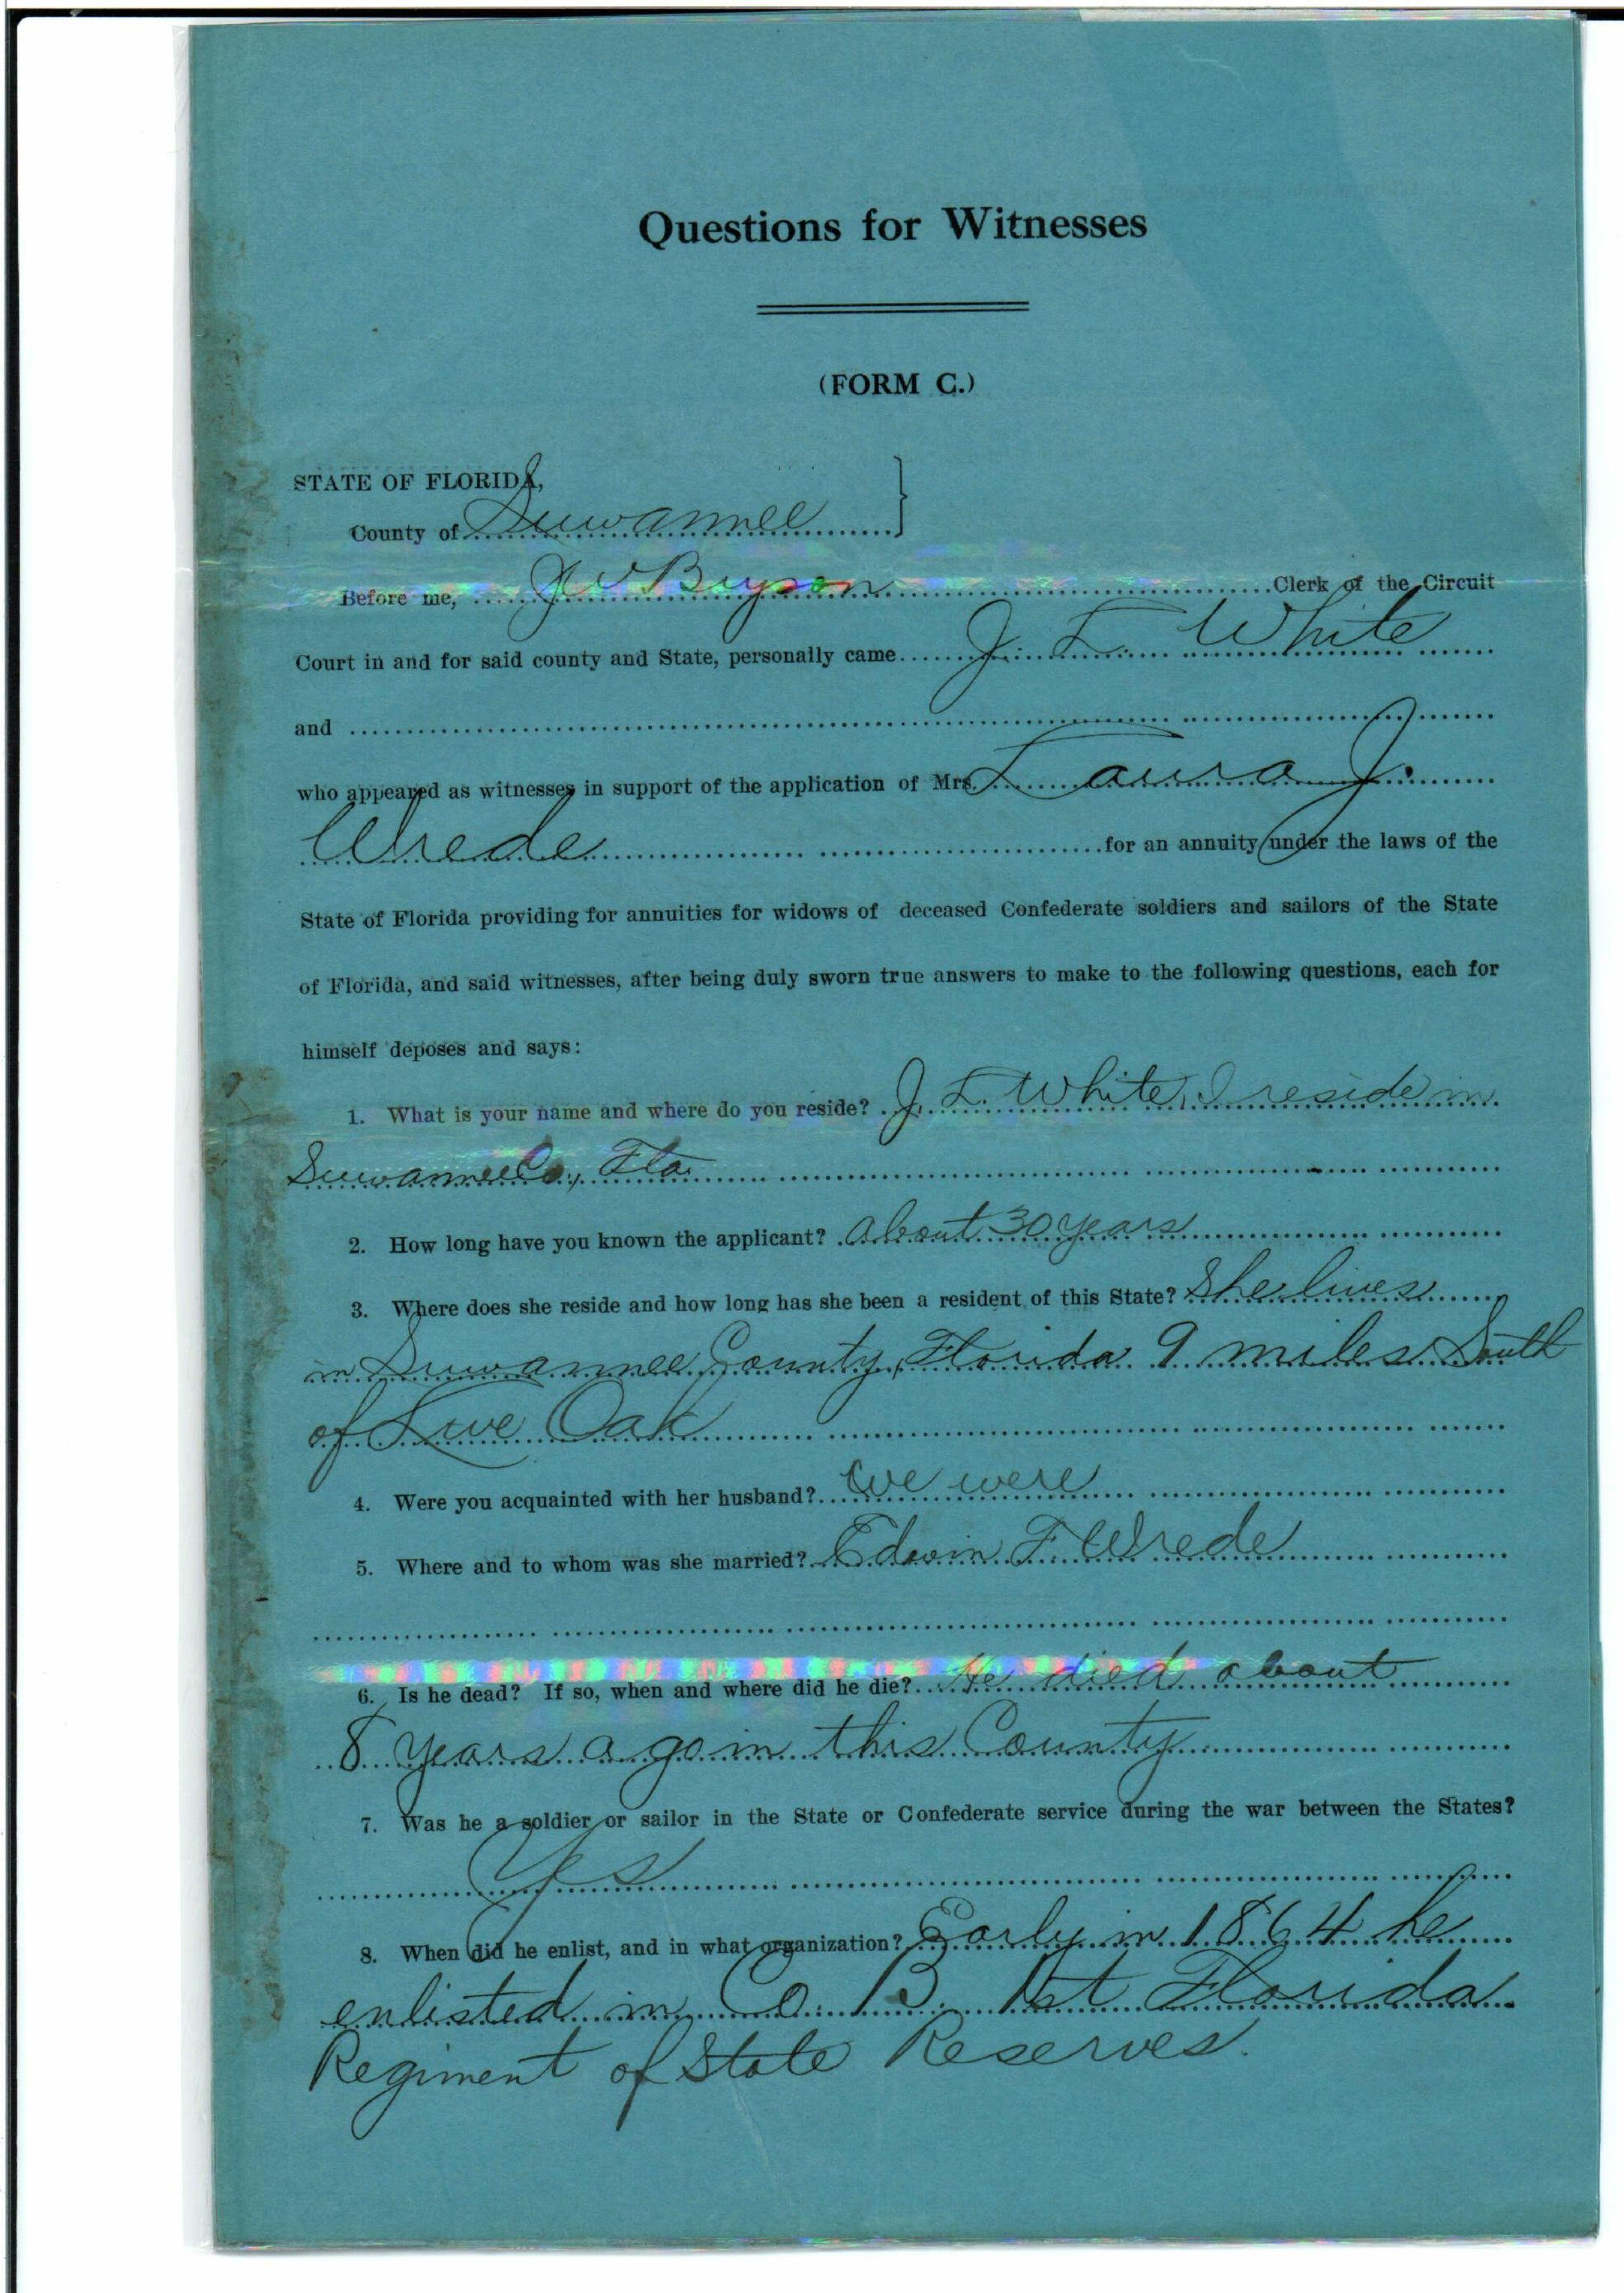 Questions for Witnesses
(FORM C.)
STATE OF FLORIDA,
County of Suwannee }
Before me, J W Bryson Clerk of the Circuit
Court in and for said county and State, personally came J. L. White
and
who appeared as witnesses in support of the application of Mrs. Laura J.
Wrede for an annuity under the laws of the
State of Florida providing for annuities for widows of deceased Confederate soldiers and sailors of the State
of Florida, and said witnesses, after being duly sworn true answers to make to the following questions, each for
himself deposes and says:
1. What is your name and where do you reside? J. L. White, I reside in
Suwannee Co., Fla.
2. How long have you known the applicant? About 30 years
3. Where does she reside and how long has she been a resident of this State? She lives
in Suwannee County, Florida 9 miles South
of Live Oak
4. Were you acquainted with her husband? We were
5. Where and to whom was she married? Edwin F. Wrede
6. Is he dead? If so, when and where did he die? He died about
8 years ago in this County
7. Was he a soldier or sailor in the State or Confederate service during the war between the States?
Yes
8. When did he enlist, and in what organization? Early in 1864 he
enlisted in Co. B. 1st Florida
Regiment of State Reserves.